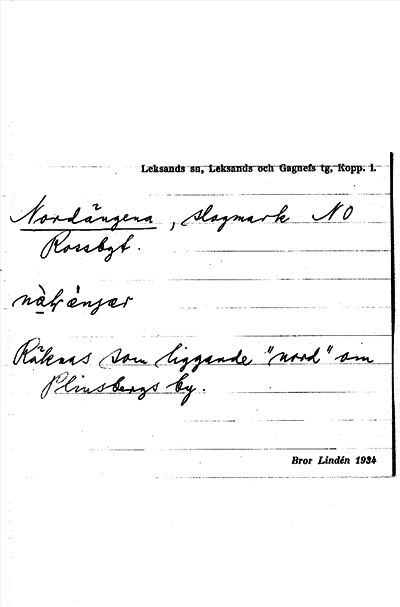 Leksands sn, Leksands och Gagnefs tg, Kopp. l.
Nordängena, slogmark NO
Rossbgt.
Räknas som liggande "nord" om
Plinsbergs by.
Bror Lindén 1934